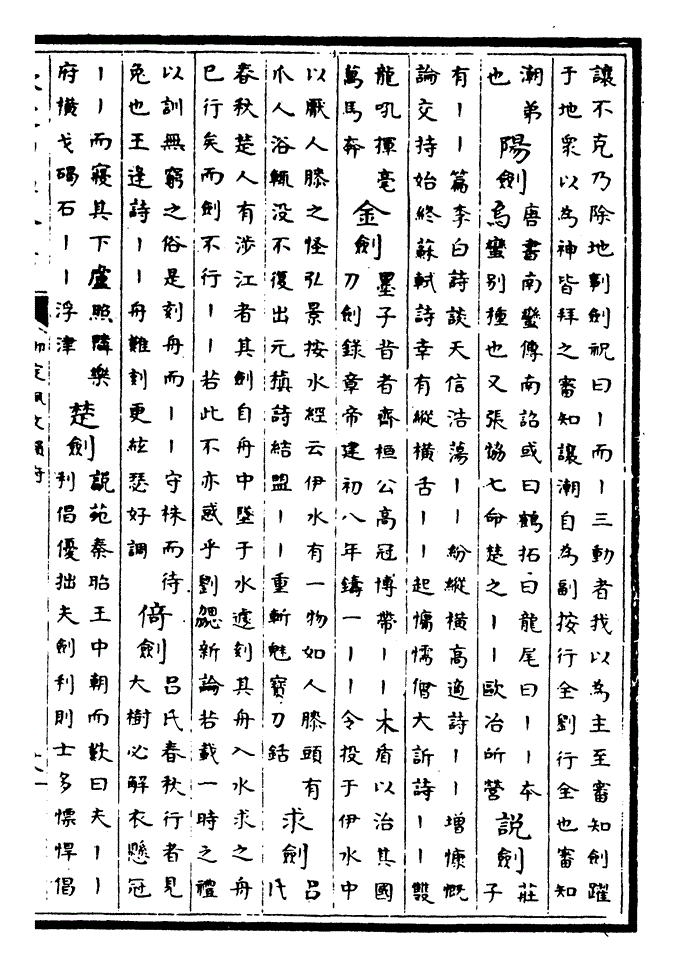 讓不克乃除地剚劍祝曰｜而｜三動者我以為主至審知劍躍
于地衆以為神皆拜之審知讓潮自為副按行全劉行全也審知
潮弟
也
陽劍
唐書南蠻傳南詔或曰鶴拓曰龍尾曰｜｜本
烏蠻別種也又張協七命楚之｜｜歐冶所營
說劍
莊
子
有｜｜篇李白詩談天信浩蕩｜｜紛縱橫高適詩｜｜增慷慨
論交持始終蘇軾詩幸有縱橫舌｜｜起慵懦僧大訢詩｜｜雙
龍吼揮毫
萬馬奔
金劍
墨子昔者齊桓公高冠博帶｜｜木盾以治其國
刀劍錄章帝建初八年鑄一｜｜令投于伊水中
以厭人膝之怪弘景按水經云伊水有一物如人膝頭有
爪人浴輒没不復出元稹詩結盟｜｜重斬魅寶刀銛
求劍
呂
氏
春秋楚人有涉江者其劍自舟中墜于水遽刻其舟入水求之舟
已行矣而劍不行｜｜若此不亦惑乎劉勰新論若載一時之禮
以訓無窮之俗是刻舟而｜｜守株而待
兔也王逢詩｜｜舟難刻更絃瑟好調
倚劍
呂氏春秋行者見
大樹必解衣懸冠
｜｜而寢其下盧照隣樂
府橫戈碣石｜｜浮津
楚劍
說苑秦昭王中朝而歎曰夫｜｜
利倡優拙夫劍利則士多慓悍倡